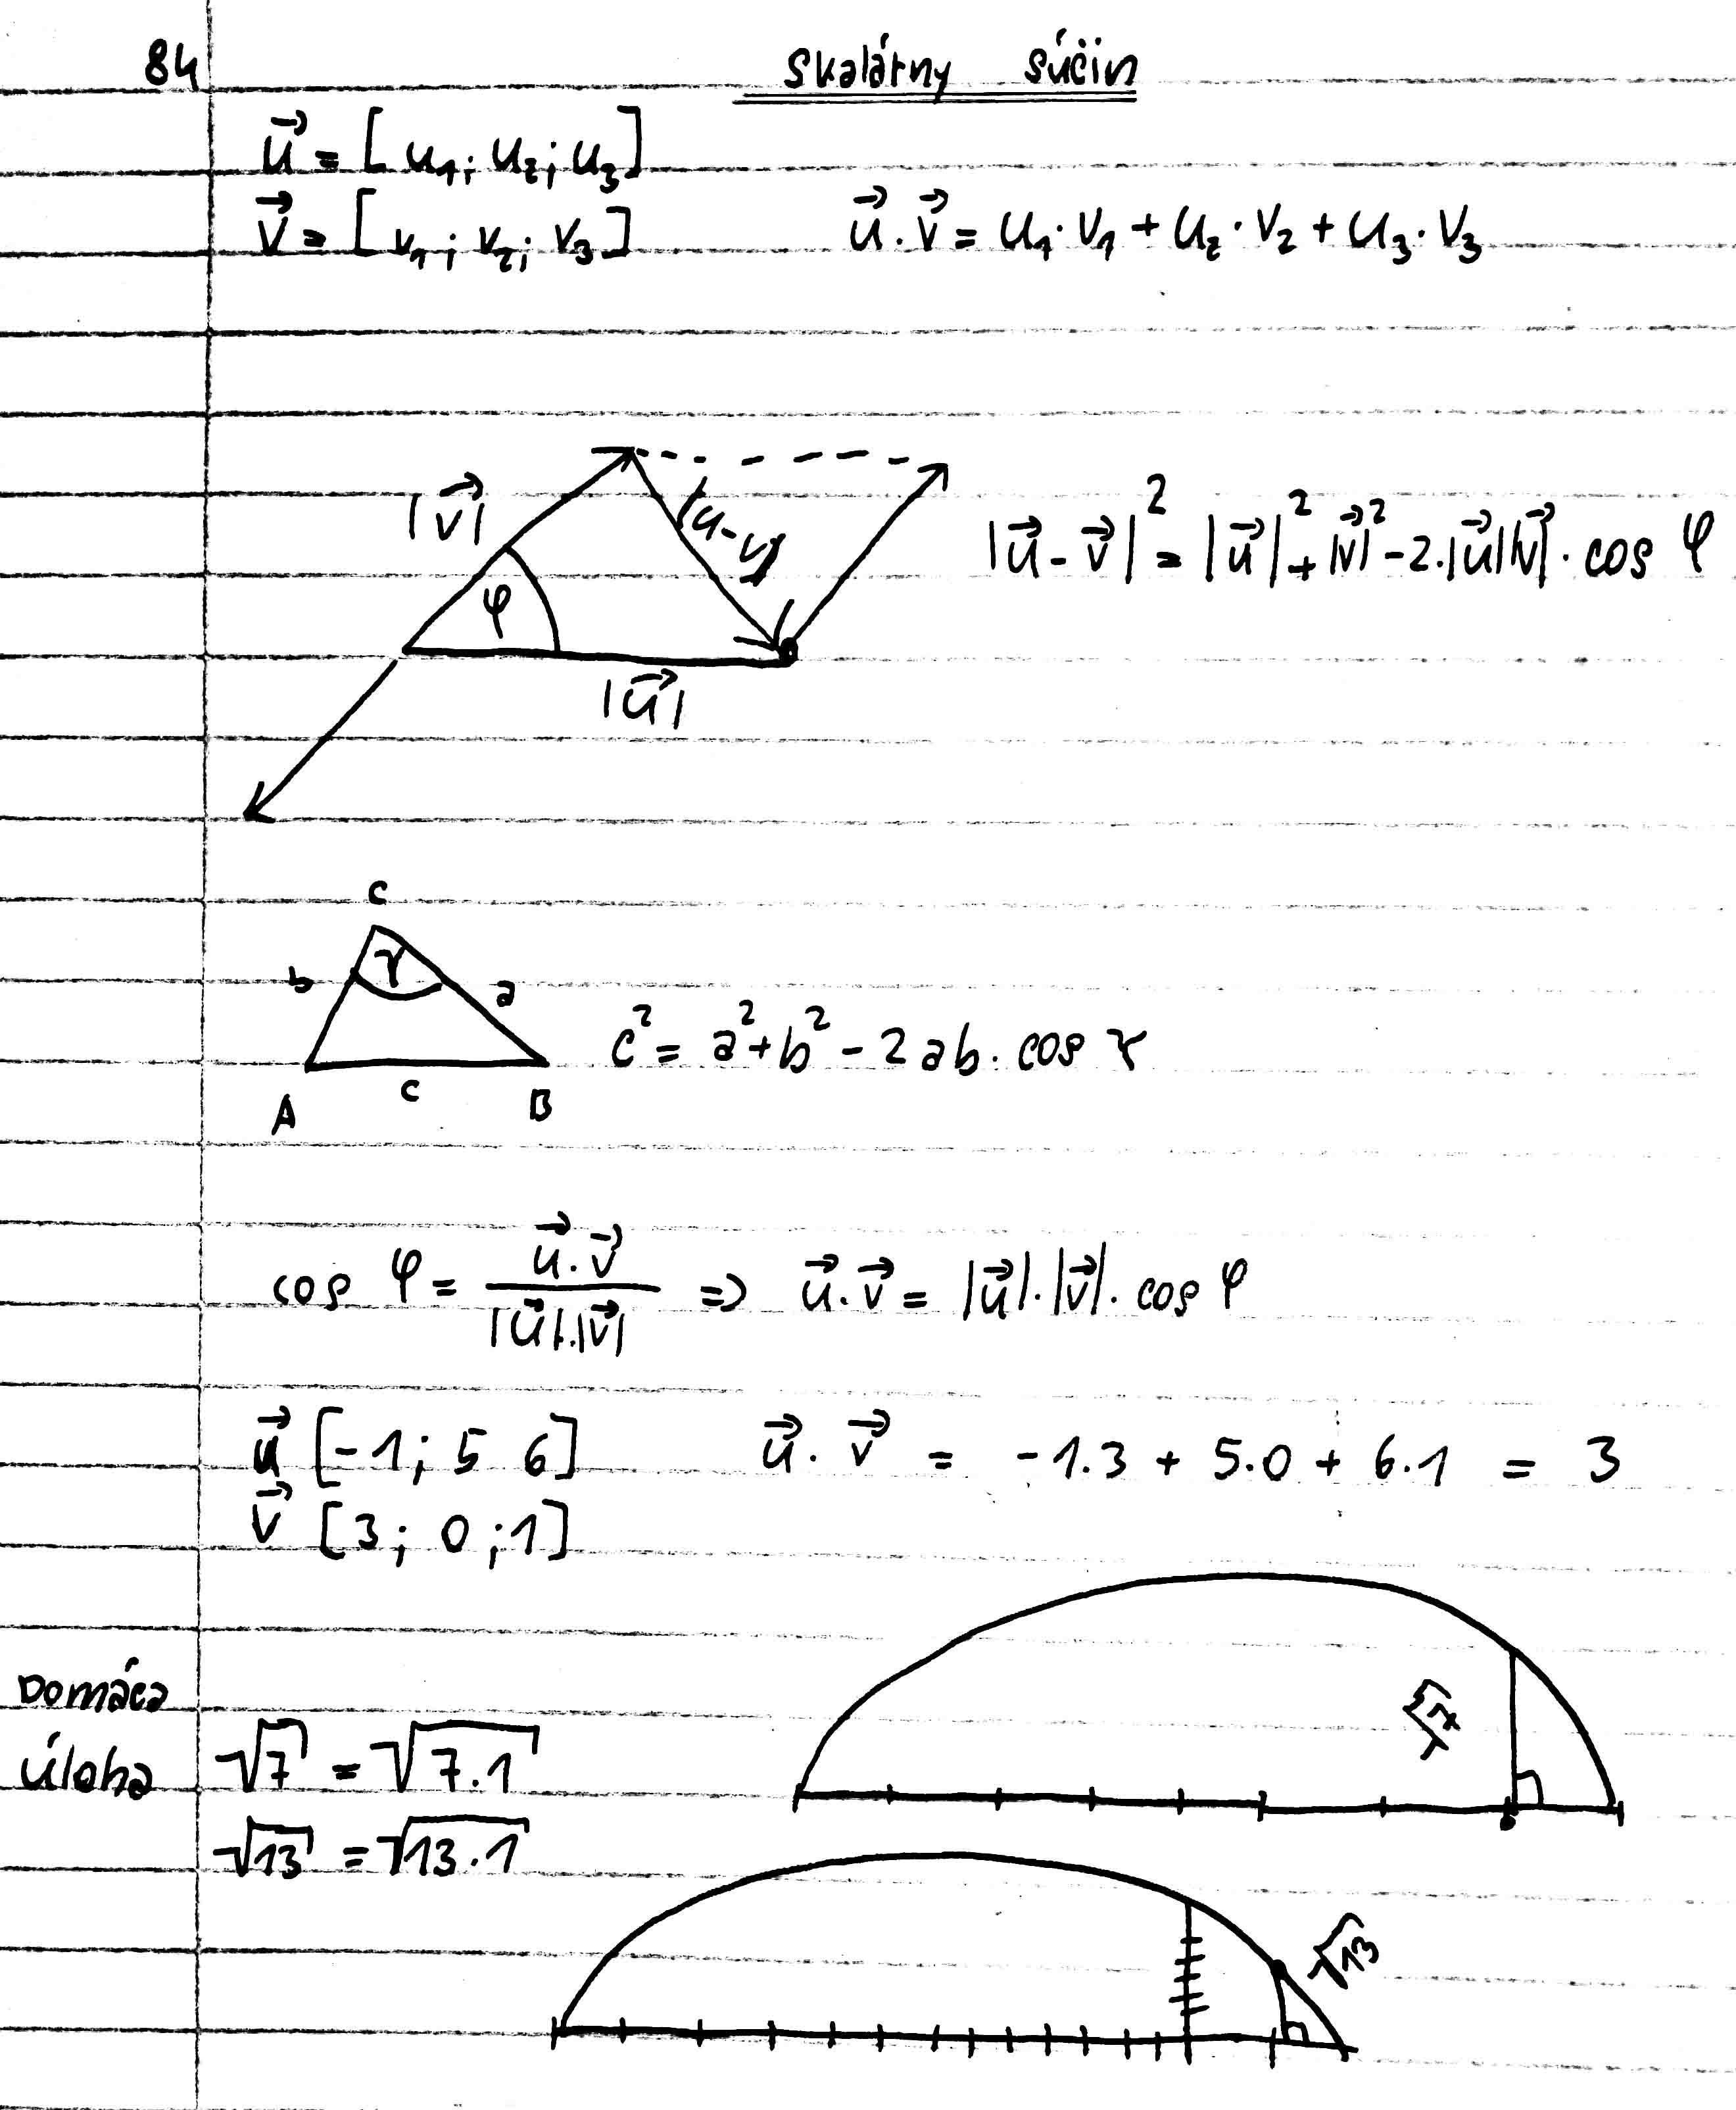 84 Skalárny súčin
u⃗ = [u₁; u₂; u₃]
v⃗ = [v₁; v₂; v₃] u⃗ . v⃗ = u₁ · v₁ + u₂ · v₂ + u₃ · v₃
|v⃗| |u-v| |u⃗ - v⃗|² = |u⃗|² + |v⃗|² - 2.|u⃗||v⃗| · cos φ
φ
|u⃗|
C
γ
b a
c² = a² + b² - 2ab. cos γ
A c B
cos φ = u⃗.v⃗ / |u⃗|.|v⃗| => u⃗.v⃗ = |u⃗|.|v⃗|. cos φ
u⃗ [-1; 5 6] u⃗ . v⃗ = -1.3 + 5.0 + 6.1 = 3
v⃗ [3; 0; 1]
Domáca
úloha √7 = √7.1 √7
√13 = √13.1
√13